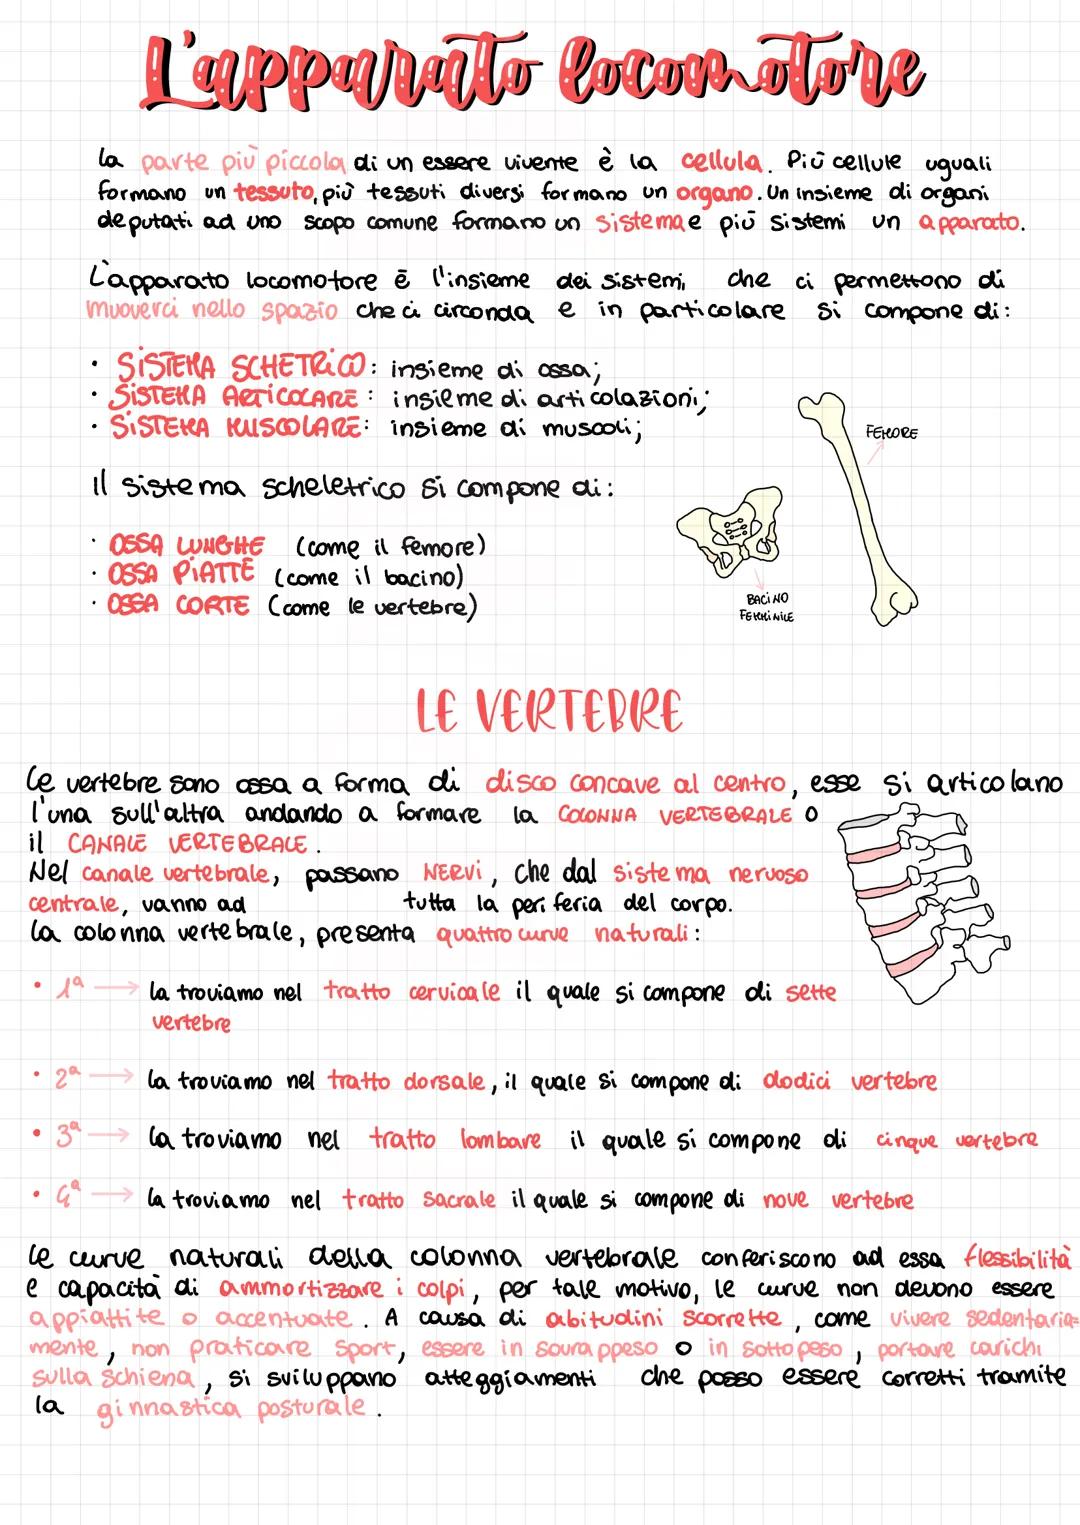 L'apparato locomotore
La parte più piccola di un essere vivente è la cellula. Più cellule uguali
formano un tessuto, più tessuti diversi formano un organo. Un insieme di organi
deputati ad uno scopo comune formano un sistema e più sistemi un apparato.
L'apparato locomotore è l'insieme dei sistemi, che ci permettono di
muoverci nello spazio che ci circonda e in particolare si compone di:
• SISTEMA SCHETRICO: insieme di ossa;
• SISTEMA ARTICOLARE: insieme di articolazioni;
• SISTEMA MUSCOLARE: insieme di muscoli;
FEMORE
Il sistema scheletrico si compone di:
• OSSA LUNGHE (come il femore)
• OSSA PIATTE (come il bacino)
• OSSA CORTE (come le vertebre)
BACINO
FEMMINILE
LE VERTEBRE
Le vertebre sono ossa a forma di disco concave al centro, esse si articolano
l'una sull'altra andando a formare la COLONNA VERTEBRALE O
il CANALE VERTEBRALE.
Nel canale vertebrale, passano NERVI, che dal sistema nervoso
centrale, vanno ad tutta la periferia del corpo.
La colonna vertebrale, presenta quattro curve naturali:
• 1ª → la troviamo nel tratto cervicale il quale si compone di sette
vertebre
• 2ª → la troviamo nel tratto dorsale, il quale si compone di dodici vertebre
• 3ª → la troviamo nel tratto lombare il quale si compone di cinque vertebre
• 4ª → la troviamo nel tratto sacrale il quale si compone di nove vertebre
Le curve naturali della colonna vertebrale conferiscono ad essa flessibilità
e capacità di ammortizzare i colpi, per tale motivo, le curve non devono essere
appiattite o accentuate. A causa di abitudini scorrette, come vivere sedentaria=
mente, non praticare sport, essere in sovrappeso o in sottopeso, portare carichi
sulla schiena, si sviluppano atteggiamenti che posso essere corretti tramite
la ginnastica posturale.